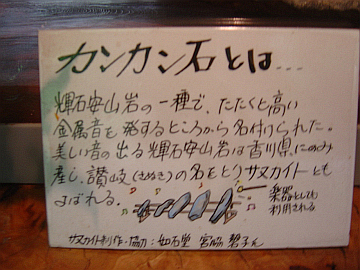 カンカン石とは...
輝石安山岩の一種で、たたくと高い
金属音を発するところから名付けられた。
美しい音の出る輝石安山岩は香川県にのみ
産し、讃岐(さぬき)の名をとりサヌカイトとも
よばれる。
楽器としても
利用される
サヌカイト制作・協力:如石堂 宮脇